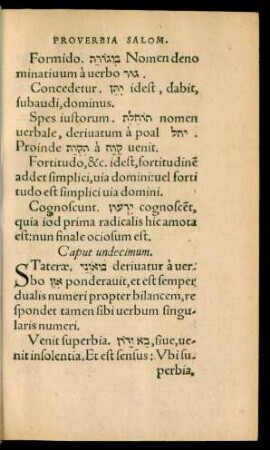 PROVERBIA SALOM.
Formido. מְגוֹרַת Nomen deno
minatiuum à uerbo גור .
Concedetur. יִתֵּן idest, dabit,
subaudi, dominus.
Spes iustorum. תּוֹחֶלֶת nomen
uerbale, deriuatum à poal יחל
Proinde תִּקְוַת à קָוָה uenit.
Fortitudo, &c. idest, fortitudinē
addet simplici, uia domini: uel forti
tudo est simplici uia domini.
Cognoscunt. יֵדְעוּן cognoscēt,
quia iod prima radicalis hic amota
est: nun finale ociosum est.
Caput undecimum.
STateræ. מֹאזְנֵי deriuatur à uer-
bo אזן ponderauit, et est semper
dualis numeri propter bilancem, re
spondet tamen sibi uerbum singu-
laris numeri.
Venit superbia. בָּא זָדוֹן, siue, ue-
nit insolentia, Et est sensus: Vbi su-
perbia,